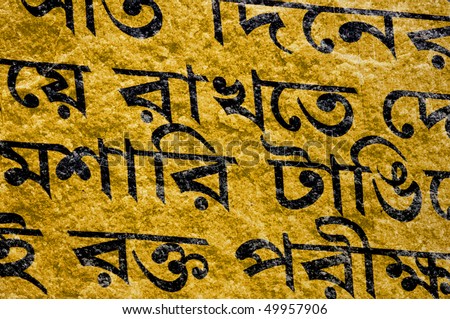 দিনের
য়ে রাখতে দে
মশারি টাঙি
ই রক্ত পরীক্ষ
www.shutterstock.com · 49957906